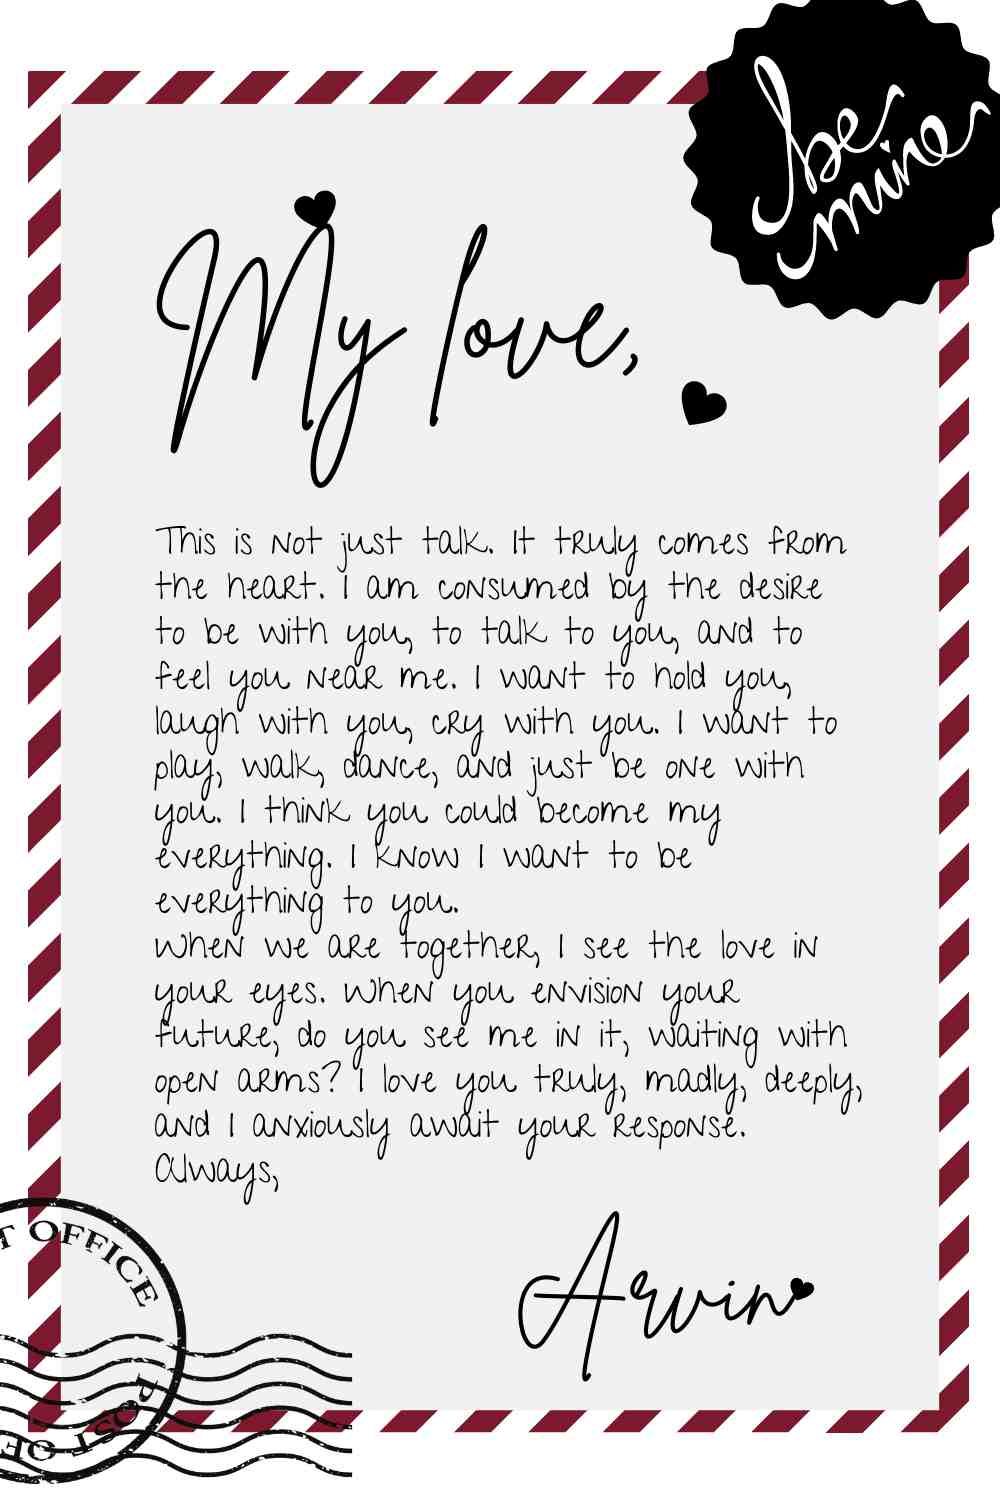 be
mine
My love,
This is not just talk. It truly comes from
the heart. I am consumed by the desire
to be with you, to talk to you, and to
feel you near me. I want to hold you,
laugh with you, cry with you. I want to
play, walk, dance, and just be one with
you. I think you could become my
everything. I know I want to be
everything to you.
When we are together, I see the love in
your eyes. When you envision your
future, do you see me in it, waiting with
open arms? I love you truly, madly, deeply,
and I anxiously await your response.
Always,
Arvin
T OFFICE
POST OF